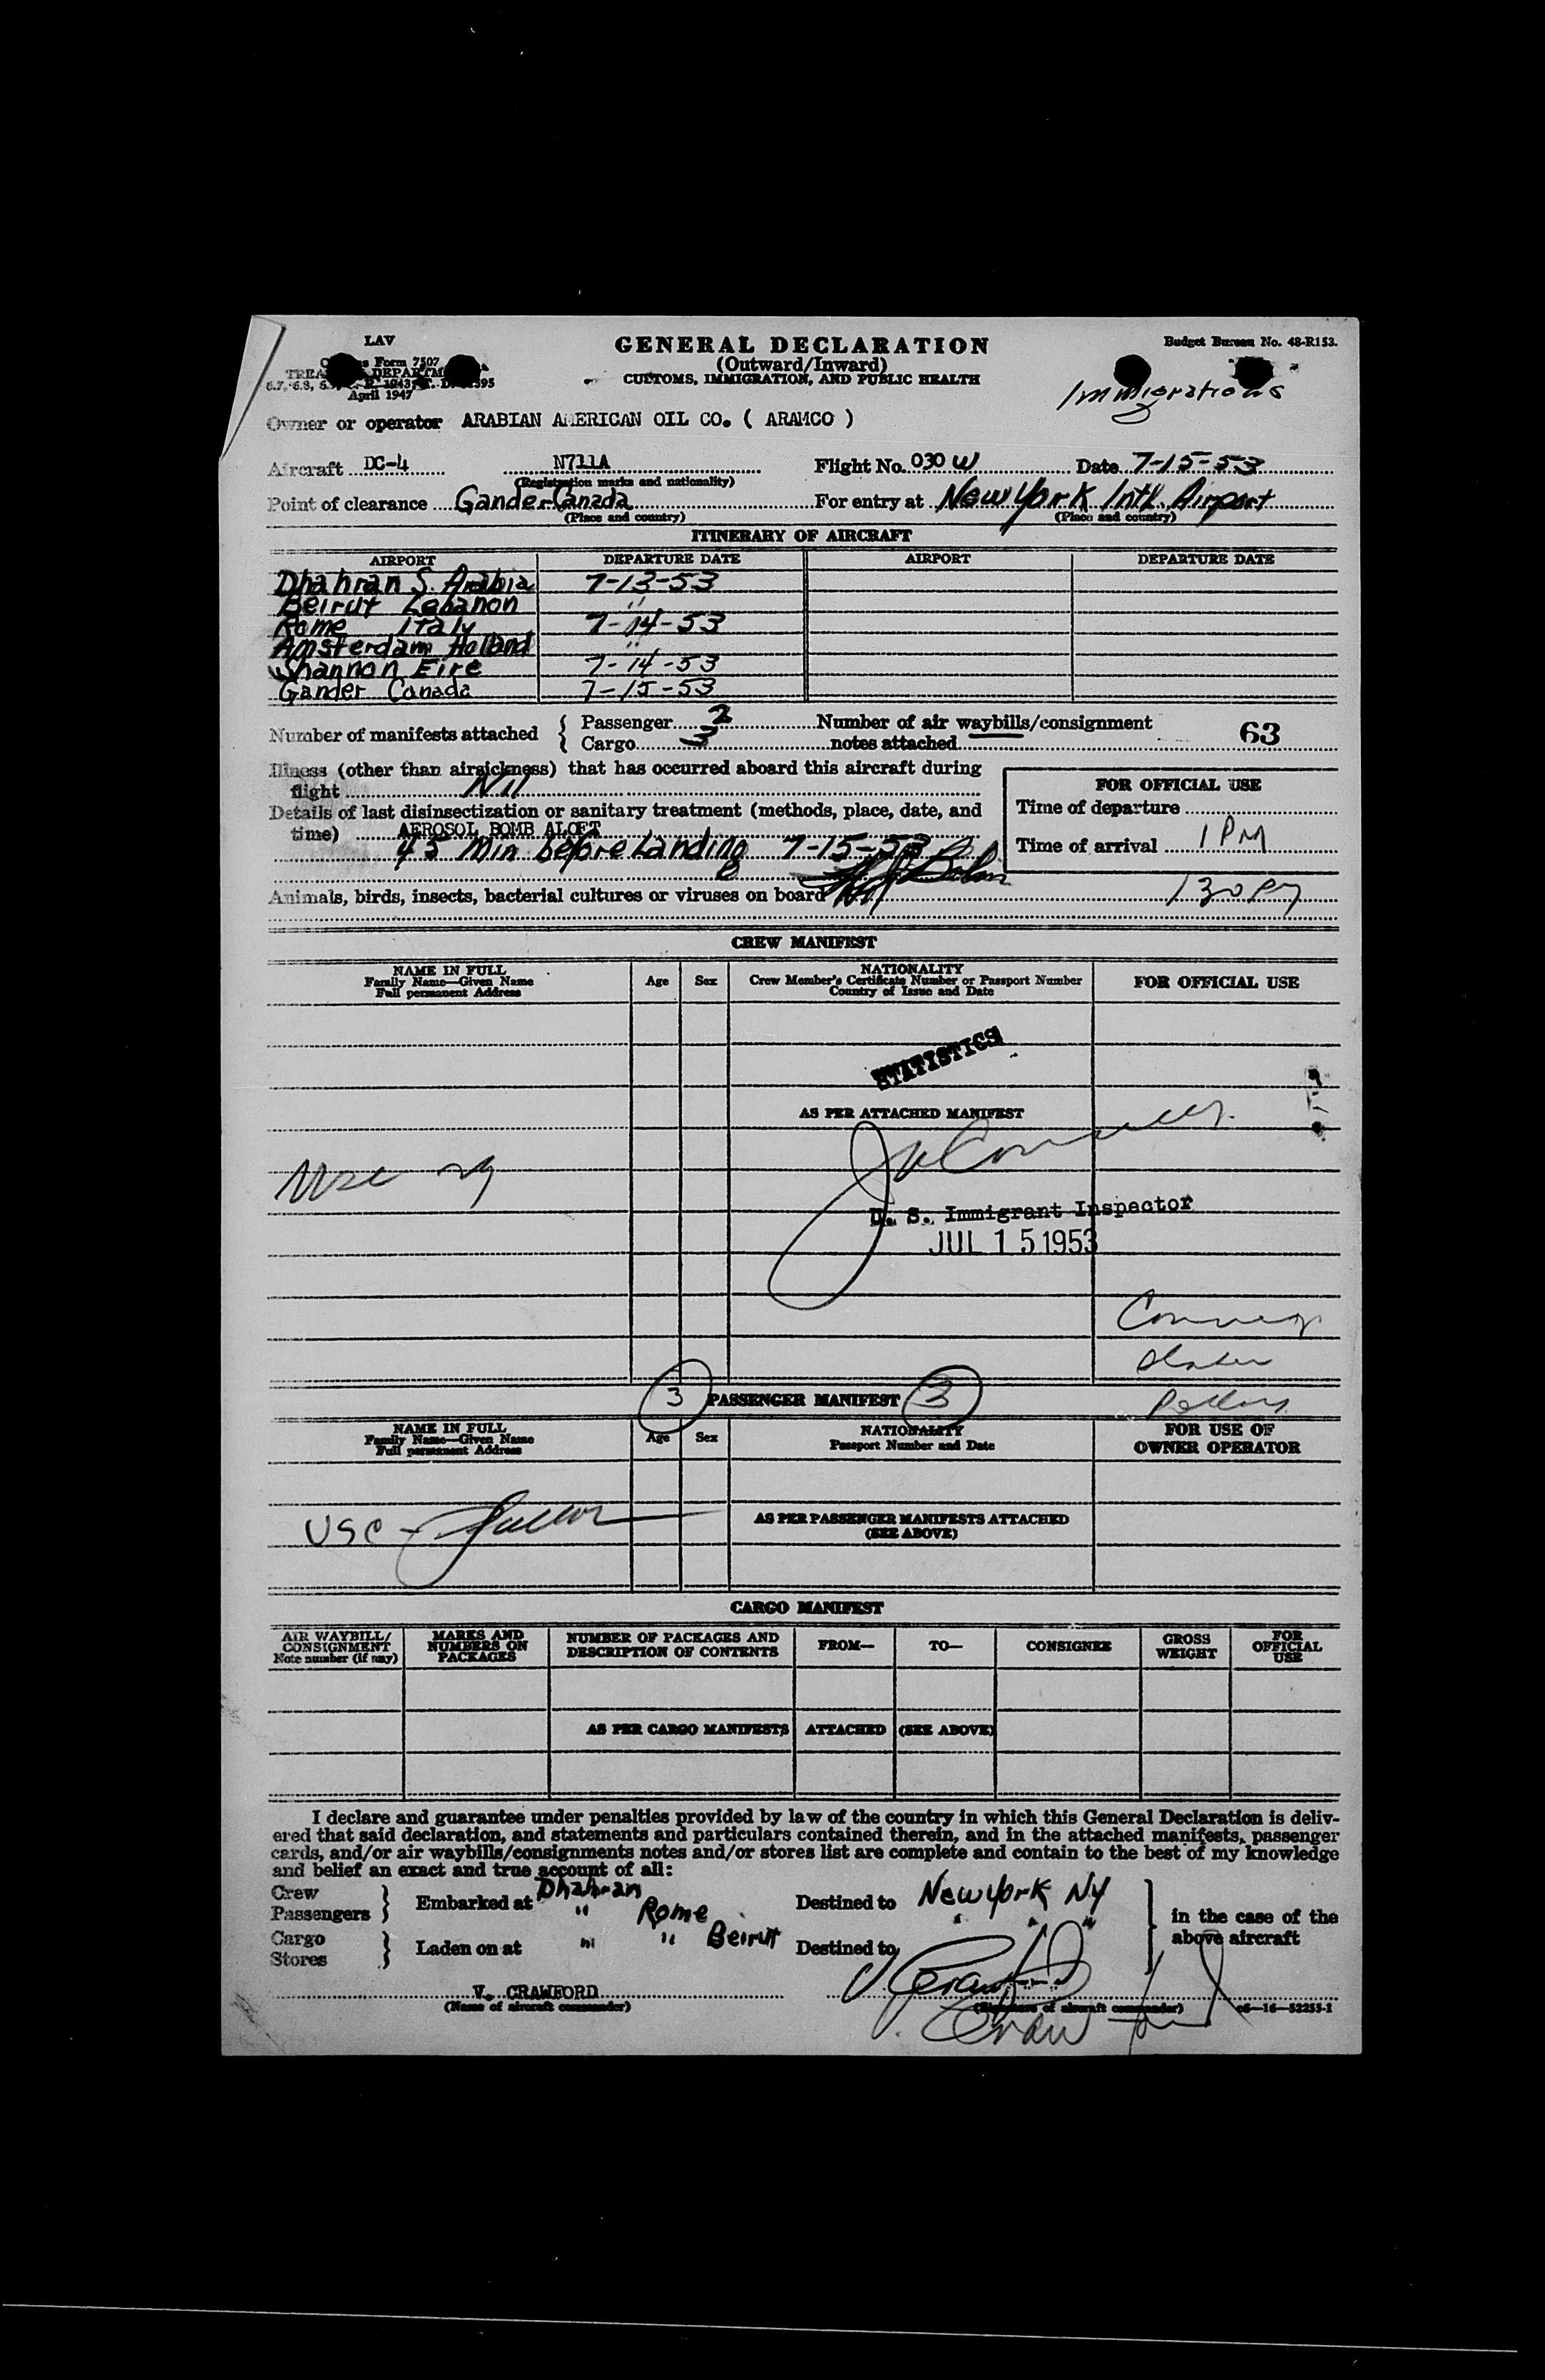 LAV
GENERAL DECLARATION
Budget Bureau No. 48-R153.
Form 7507
(Outward/Inward)
CUSTOMS, IMMIGRATION, AND PUBLIC HEALTH
April 1947
Immigrations
Owner or operator ARABIAN AMERICAN OIL CO. ( ARAMCO )
Aircraft DC-4 N711A Flight No. 030 W Date 7-15-53
(Registration marks and nationality)
Point of clearance Gander Canada For entry at New York Intl. Airport
(Place and country) (Place and country)
ITINERARY OF AIRCRAFT
AIRPORT DEPARTURE DATE AIRPORT DEPARTURE DATE
Dhahran S. Arabia 7-13-53
Beirut Lebanon "
Rome Italy 7-14-53
Amsterdam Holland "
Shannon Eire 7-14-53
Gander Canada 7-15-53
Number of manifests attached { Passenger 2 Number of air waybills/consignment
{ Cargo 3 notes attached 63
Illness (other than airsickness) that has occurred aboard this aircraft during
flight Nil
FOR OFFICIAL USE
Details of last disinsectization or sanitary treatment (methods, place, date, and
time) AEROSOL BOMB ALOFT
Time of departure
45 Min before Landing 7-15-53
Time of arrival 1 PM
Animals, birds, insects, bacterial cultures or viruses on board Nil
130 PM
CREW MANIFEST
NAME IN FULL
Family Name—Given Name
Full permanent Address
Age Sex
NATIONALITY
Crew Member's Certificate Number or Passport Number
Country of Issue and Date
FOR OFFICIAL USE
STATISTICS
AS PER ATTACHED MANIFEST
U. S. Immigrant Inspector
JUL 15 1953
3 PASSENGER MANIFEST 3
NAME IN FULL
Family Name—Given Name
Full permanent Address
Age Sex
NATIONALITY
Passport Number and Date
FOR USE OF
OWNER OPERATOR
USC
AS PER PASSENGER MANIFESTS ATTACHED
(SEE ABOVE)
CARGO MANIFEST
AIR WAYBILL/
CONSIGNMENT
Note number (if any)
MARKS AND
NUMBERS ON
PACKAGES
NUMBER OF PACKAGES AND
DESCRIPTION OF CONTENTS
FROM—
TO—
CONSIGNEE
GROSS
WEIGHT
FOR
OFFICIAL
USE
AS PER CARGO MANIFESTS ATTACHED (SEE ABOVE)
I declare and guarantee under penalties provided by law of the country in which this General Declaration is deliv-
ered that said declaration, and statements and particulars contained therein, and in the attached manifests, passenger
cards, and/or air waybills/consignments notes and/or stores list are complete and contain to the best of my knowledge
and belief an exact and true account of all:
Crew
Passengers } Embarked at Dhahran " Rome Destined to New York NY
Cargo
Stores } Laden on at " " Beirut Destined to " " "
in the case of the
above aircraft
V. CRAWFORD
(Name of aircraft commander)
(Signature of aircraft commander)
c6—16—52255-1
Crawford